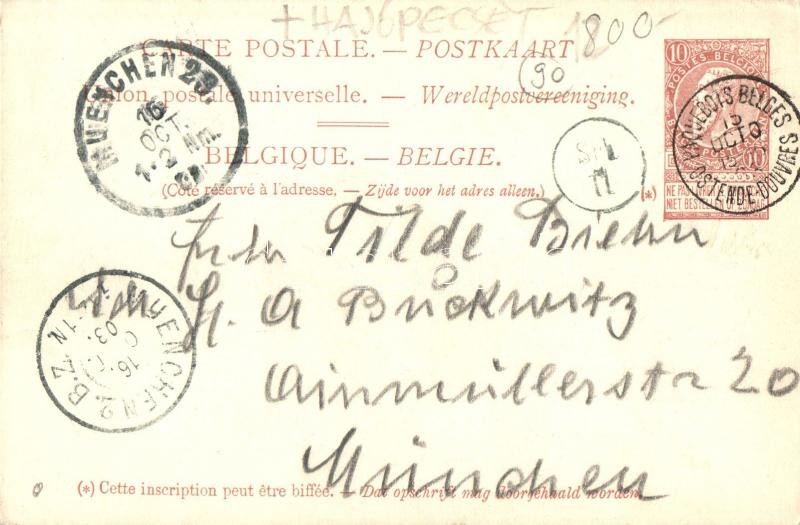 + HAJÓPECSÉT
1800-
90
CARTE POSTALE. — POSTKAART
Union postale universelle. — Wereldpostvereeniging.
BELGIQUE. — BELGIE.
(Côté réservé à l'adresse. — Zijde voor het adres alleen.)
(*)
10 10
POSTES BELGIQUE
10
NE PAS
NIET BESTELLEN OP ZONDAG
PAQUEBOTS BELGES
OCTO
OSTENDE-DOUVRES
MUENCHEN 23.
16
OCT.
1-2 NM.
MUENCHEN 2 B.Z.
16.
03.
11
Tilde Biehn
A Buckwitz
Ainmüllerstr 20
München
(*) Cette inscription peut être biffée. — Dat opschrift mag doorgehaald worden.